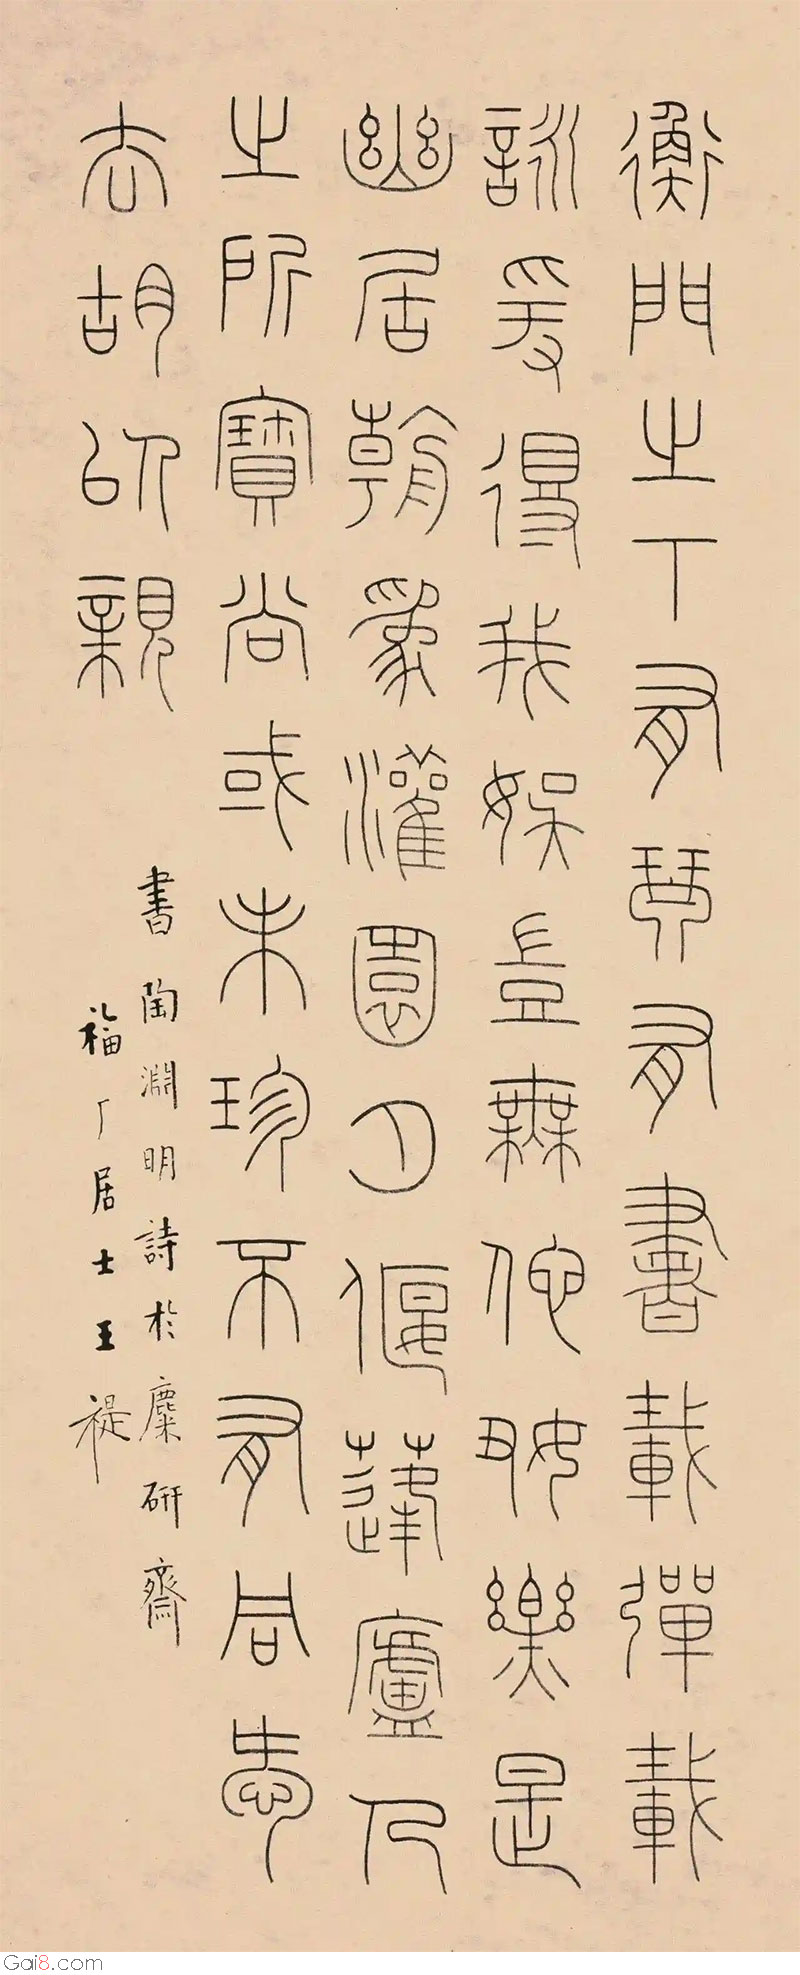 衡門之下有琴有書載彈載
詠爰得我娛豈無佗好樂是
幽居朝為灌園夕偃蓬廬人
之所寶尚或未珍不有同志
云胡以親
書陶淵明詩於麋硏齋
福厂居士王禔
Gai8.com